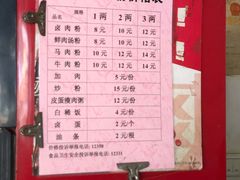 价格表
品名 规格 1两 2两 3两
卤肉粉 8元 10元 12元
鲜肉汤粉 8元 10元 12元
马肉粉 10元 12元 14元
牛肉粉 10元 12元 14元
加肉 5元/份
炒粉 15元/份
皮蛋瘦肉粥 12元/份
白稀饭 4元/份
卤蛋 2元/个
油条 2元/根
价格投诉举报电话:12358
食品卫生安全投诉举报电话:12331